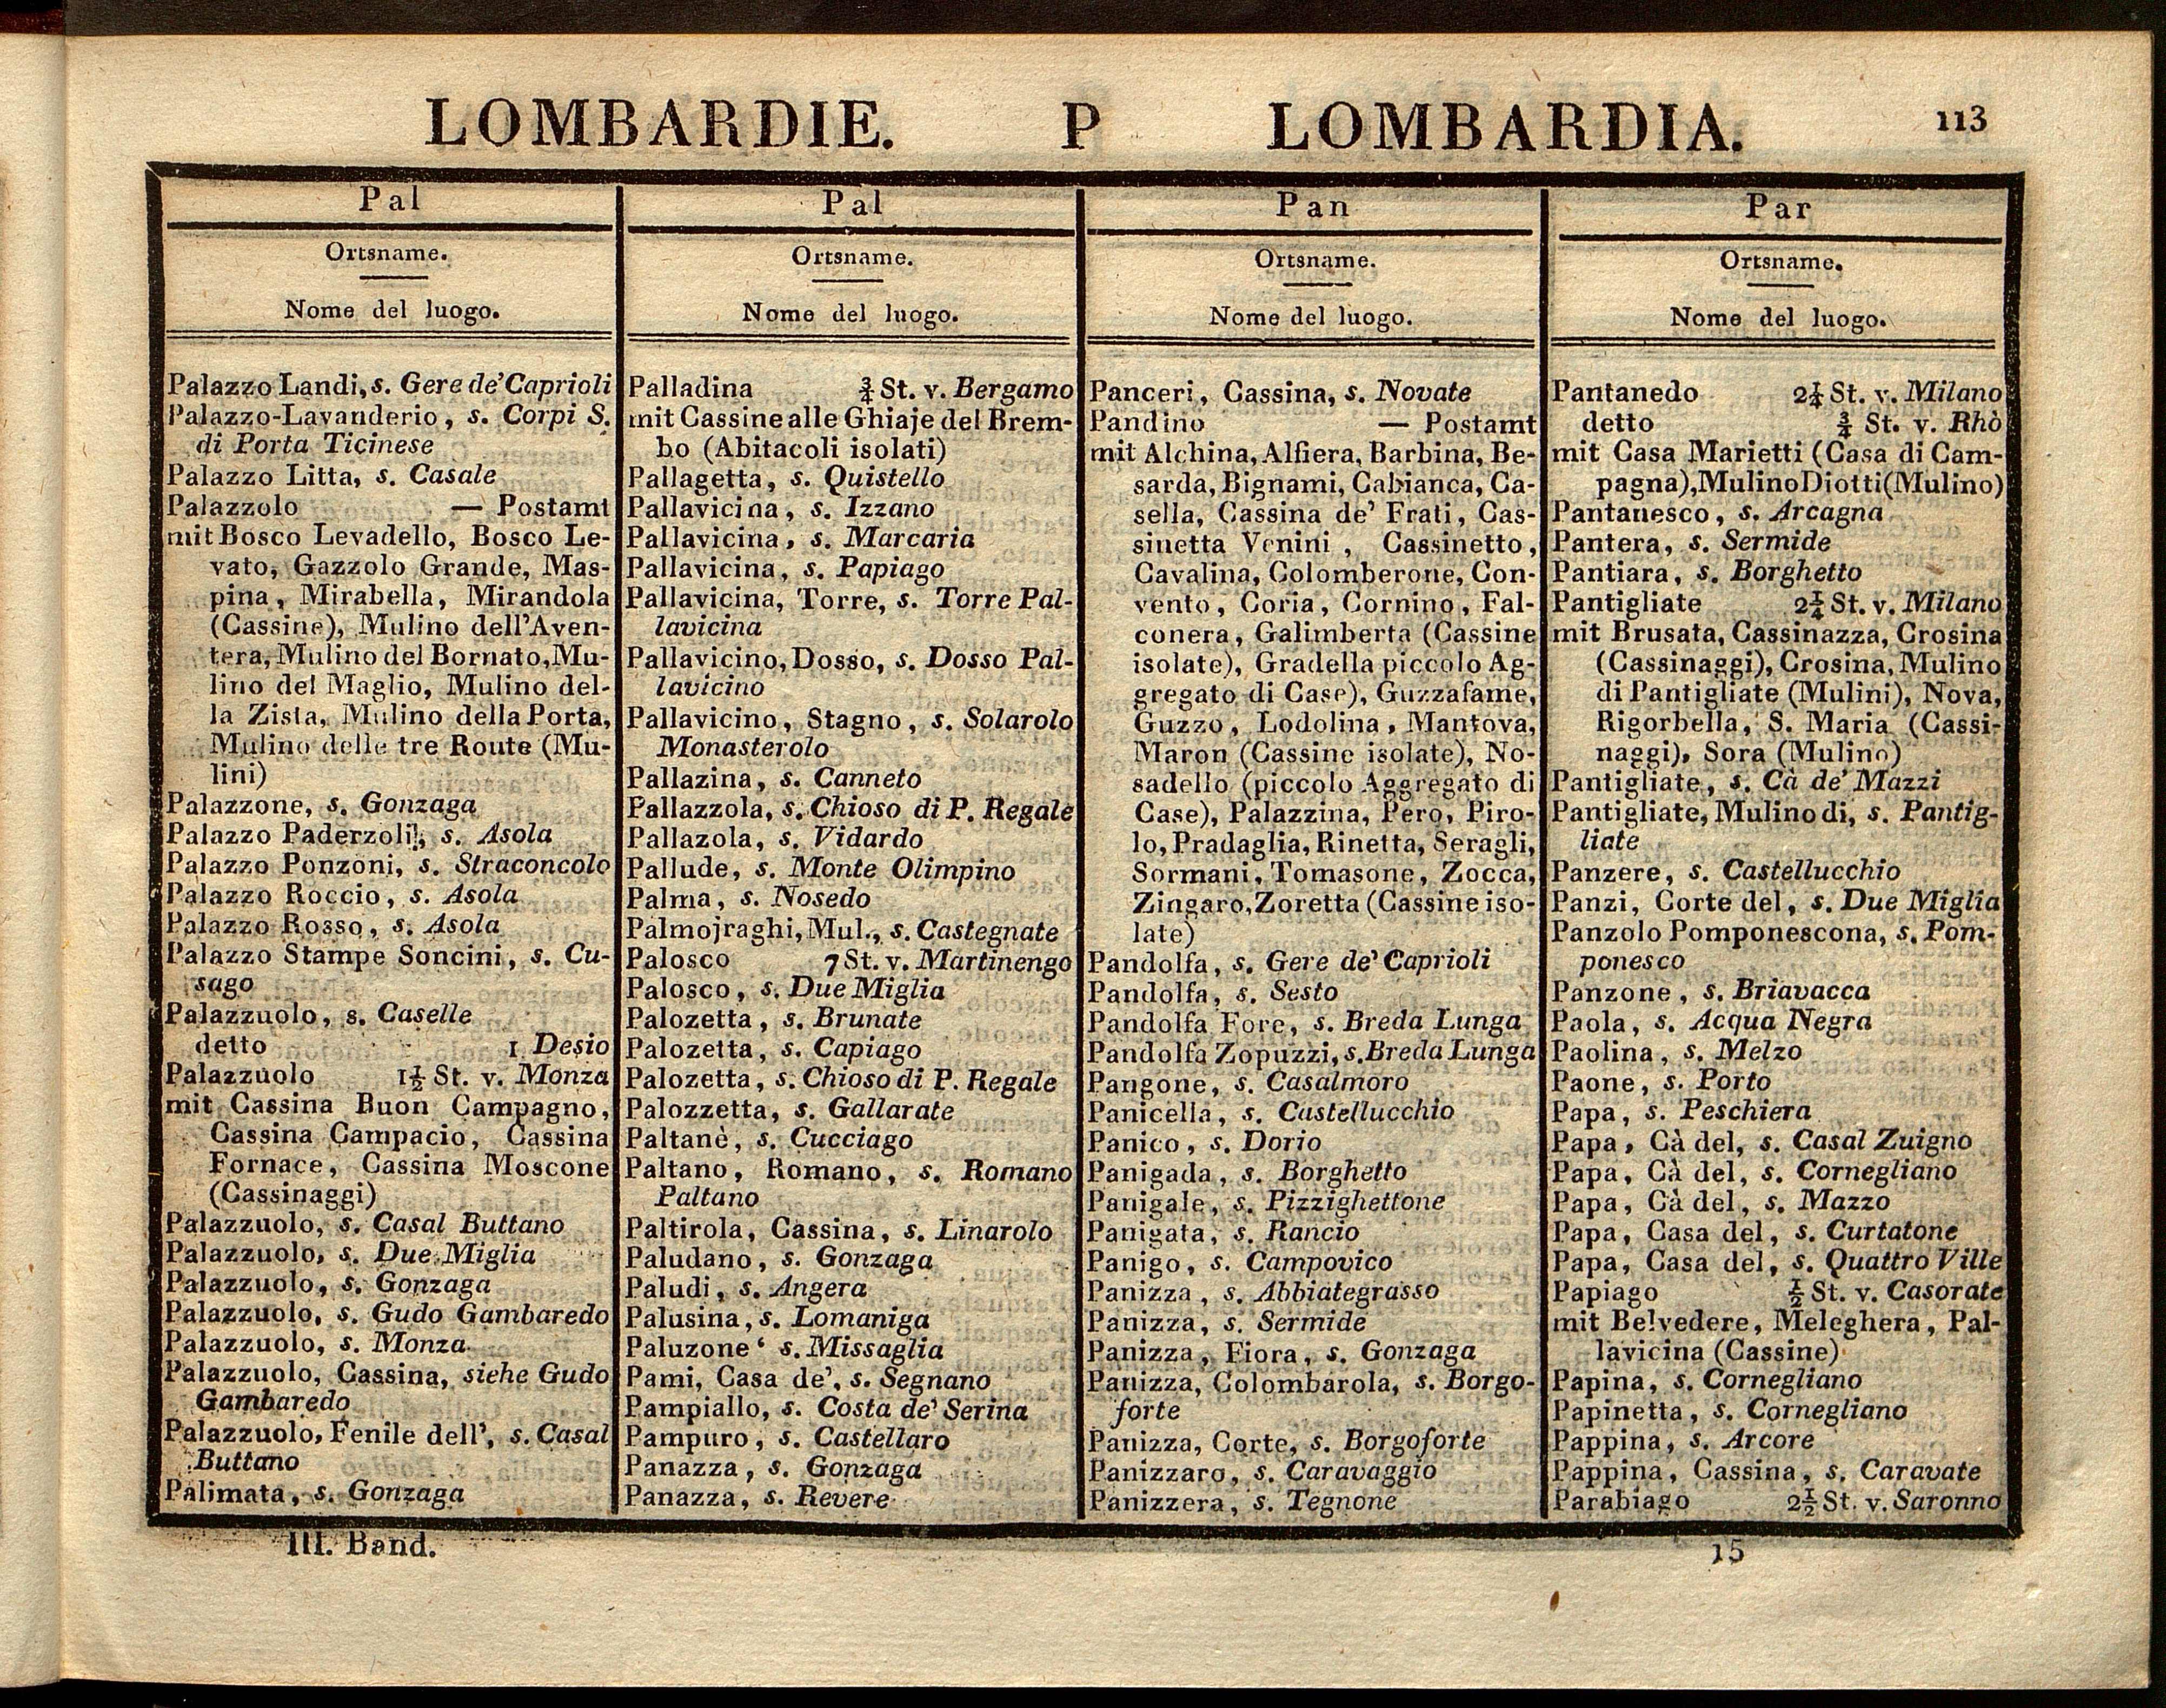 LOMBARDIE. P LOMBARDIA. 113
Pal
Ortsname.
Nome del luogo.
Palazzo Landi, s. Gere de' Caprioli
Palazzo-Lavanderio, s. Corpi S.
di Porta Ticinese
Palazzo Litta, s. Casale
Palazzolo — Postamt
mit Bosco Levadello, Bosco Le-
vato, Gazzolo Grande, Mas-
pina, Mirabella, Mirandola
(Cassine), Mulino dell'Aven-
tera, Mulino del Bornato, Mu-
lino del Maglio, Mulino del-
la Zista, Mulino della Porta,
Mulino delle tre Route (Mu-
lini)
Palazzone, s. Gonzaga
Palazzo Paderzoli, s. Asola
Palazzo Ponzoni, s. Straconcolo
Palazzo Roccio, s. Asola
Palazzo Rosso, s. Asola
Palazzo Stampe Soncini, s. Cu-
sago
Palazzuolo, s. Caselle
detto 1 Desio
Palazzuolo 1½ St. v. Monza
mit Cassina Buon Campagno,
Cassina Campacio, Cassina
Fornace, Cassina Moscone
(Cassinaggi)
Palazzuolo, s. Casal Buttano
Palazzuolo, s. Due Miglia
Palazzuolo, s. Gonzaga
Palazzuolo, s. Gudo Gambaredo
Palazzuolo, s. Monza
Palazzuolo, Cassina, siehe Gudo
Gambaredo
Palazzuolo, Fenile dell', s. Casal
Buttano
Palimata, s. Gonzaga
Pal
Ortsname.
Nome del luogo.
Palladina ¾ St. v. Bergamo
mit Cassine alle Ghiaje del Brem-
bo (Abitacoli isolati)
Pallagetta, s. Quistello
Pallavicina, s. Izzano
Pallavicina, s. Marcaria
Pallavicina, s. Papiago
Pallavicina, Torre, s. Torre Pal-
lavicina
Pallavicino, Dosso, s. Dosso Pal-
lavicino
Pallavicino, Stagno, s. Solarolo
Monasterolo
Pallazina, s. Canneto
Pallazzola, s. Chioso di P. Regale
Pallazola, s. Vidardo
Pallude, s. Monte Olimpino
Palma, s. Nosedo
Palmojraghi, Mul., s. Castegnate
Palosco 7 St. v. Martinengo
Palosco, s. Due Miglia
Palozetta, s. Brunate
Palozetta, s. Capiago
Palozetta, s. Chioso di P. Regale
Palozzetta, s. Gallarate
Paltanè, s. Cucciago
Paltano, Romano, s. Romano
Paltano
Paltirola, Cassina, s. Linarolo
Paludano, s. Gonzaga
Paludi, s. Angera
Palusina, s. Lomaniga
Paluzone‘ s. Missaglia
Pami, Casa de', s. Segnano
Pampiallo, s. Costa de' Serina
Pampuro, s. Castellaro
Panazza, s. Gonzaga
Panazza, s. Revere
Pan
Ortsname.
Nome del luogo.
Panceri, Cassina, s. Novate
Pandino — Postamt
mit Alchina, Alfiera, Barbina, Be-
sarda, Bignami, Cabianca, Ca-
sella, Cassina de' Frati, Cas-
sinetta Venini, Cassinetto,
Cavalina, Colomberone, Con-
vento, Coria, Cornino, Fal-
conera, Galimberta (Cassine
isolate), Gradella piccolo Ag-
gregato di Case), Guzzafame,
Guzzo, Lodolina, Mantova,
Maron (Cassine isolate), No-
sadello (piccolo Aggregato di
Case), Palazzina, Pero, Piro-
lo, Pradaglia, Rinetta, Seragli,
Sormani, Tomasone, Zocca,
Zingaro, Zoretta (Cassine iso-
late)
Pandolfa, s. Gere de' Caprioli
Pandolfa, s. Sesto
Pandolfa Fore, s. Breda Lunga
Pandolfa Zopuzzi, s. Breda Lunga
Pangone, s. Casalmoro
Panicella, s. Castellucchio
Panico, s. Dorio
Panigada, s. Borghetto
Panigale, s. Pizzighettone
Panigata, s. Rancio
Panigo, s. Campovico
Panizza, s. Abbiategrasso
Panizza, s. Sermide
Panizza, Fiora, s. Gonzaga
Panizza, Colombarola, s. Borgo-
forte
Panizza, Corte, s. Borgoforte
Panizzaro, s. Caravaggio
Panizzera, s. Tegnone
Par
Ortsname.
Nome del luogo.
Pantanedo 2¼ St. v. Milano
detto ¾ St. v. Rhò
mit Casa Marietti (Casa di Cam-
pagna), Mulino Diotti (Mulino)
Pantanesco, s. Arcagna
Pantera, s. Sermide
Pantiara, s. Borghetto
Pantigliate 2¼ St. v. Milano
mit Brusata, Cassinazza, Crosina
(Cassinaggi), Crosina, Mulino
di Pantigliate (Mulini), Nova,
Rigorbella, S. Maria (Cassi-
naggi), Sora (Mulino)
Pantigliate, s. Cà de' Mazzi
Pantigliate, Mulino di, s. Pantig-
liate
Panzere, s. Castellucchio
Panzi, Corte del, s. Due Miglia
Panzolo Pomponescona, s. Pom-
ponesco
Panzone, s. Briavacca
Paola, s. Acqua Negra
Paolina, s. Melzo
Paone, s. Porto
Papa, s. Peschiera
Papa, Cà del, s. Casal Zuigno
Papa, Cà del, s. Cornegliano
Papa, Cà del, s. Mazzo
Papa, Casa del, s. Curtatone
Papa, Casa del, s. Quattro Ville
Papiago ½ St. v. Casorate
mit Belvedere, Meleghera, Pal-
lavicina (Cassine)
Papina, s. Cornegliano
Papinetta, s. Cornegliano
Pappina, s. Arcore
Pappina, Cassina, s. Caravate
Parabiago 2½ St. v. Saronno
III. Band. 15